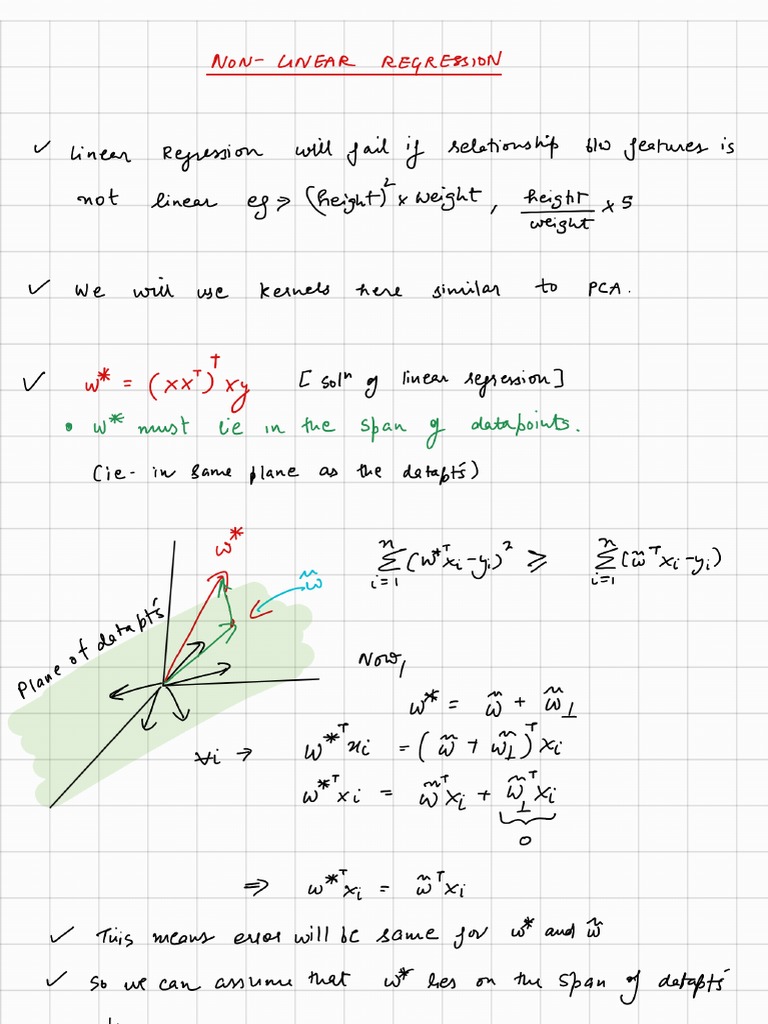 NON-LINEAR REGRESSION
✓ Linear Regression will fail if relationship b/w features is
not linear eg → (height)² × weight, height/weight × 5
✓ We will use kernels here similar to PCA.
✓ w* = (XXᵀ)†Xy [solⁿ of linear regression]
• w* must lie in the span of datapoints.
(ie- in same plane as the datapts)
w*
w̃
Plane of datapts
∑ᵢ₌₁ⁿ (w*ᵀxᵢ-yᵢ)² ≥ ∑ᵢ₌₁ⁿ (w̃ᵀxᵢ-yᵢ)
Now,
w* = w̃ + w̃⊥
∀i → w*ᵀxᵢ = (w̃ + w̃⊥)ᵀxᵢ
w*ᵀxᵢ = w̃ᵀxᵢ + w̃⊥ᵀxᵢ
0
⇒ w*ᵀxᵢ = w̃ᵀxᵢ
✓ This means error will be same for w* and w̃
✓ So we can assume that w* lies on the span of datapts